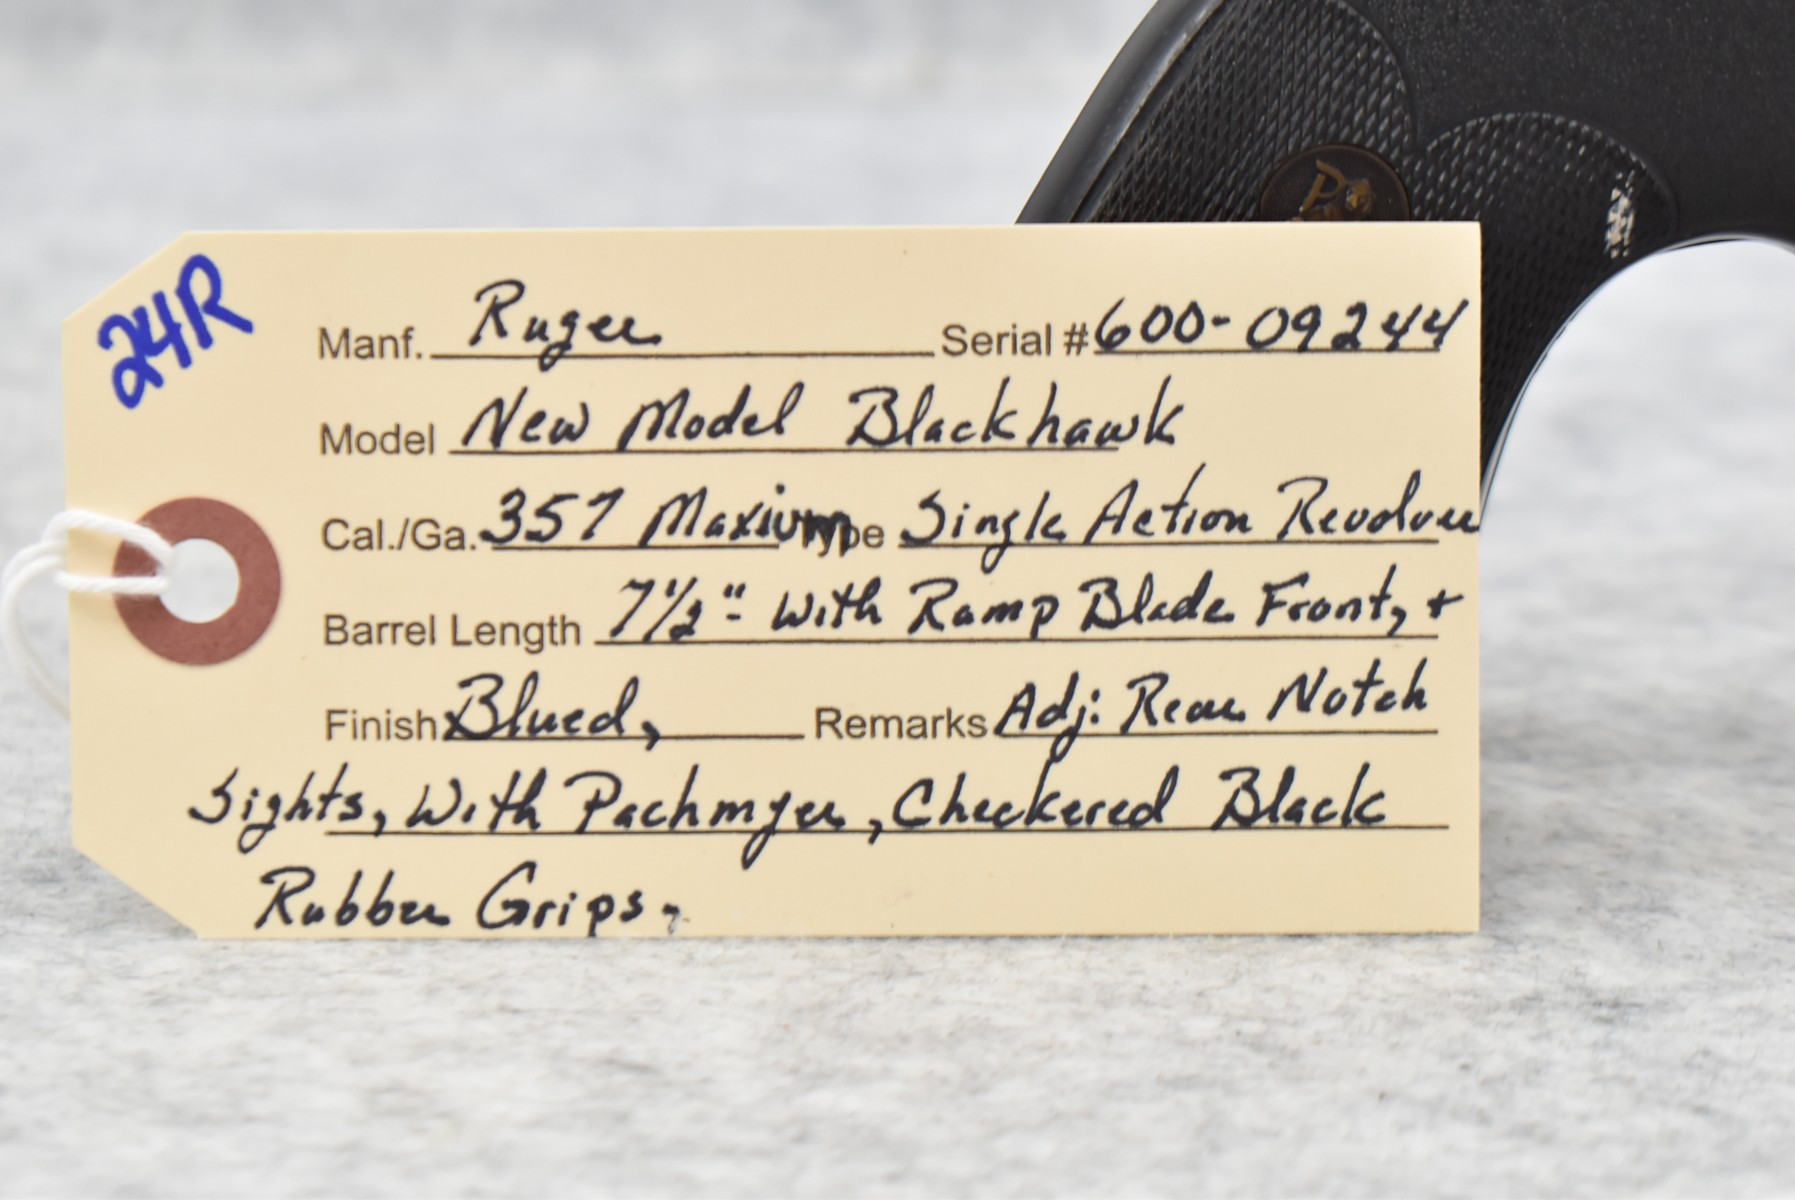 24R
Manf. Ruger Serial # 600-09244
Model New Model Blackhawk
Cal./Ga. 357 Maxium Type Single Action Revolver
Barrel Length 7 1/2" - With Ramp Blade Front, +
Finish Blued, Remarks Adj: Rear Notch
Sights, With Pachmyer, Checkered Black
Rubber Grips.